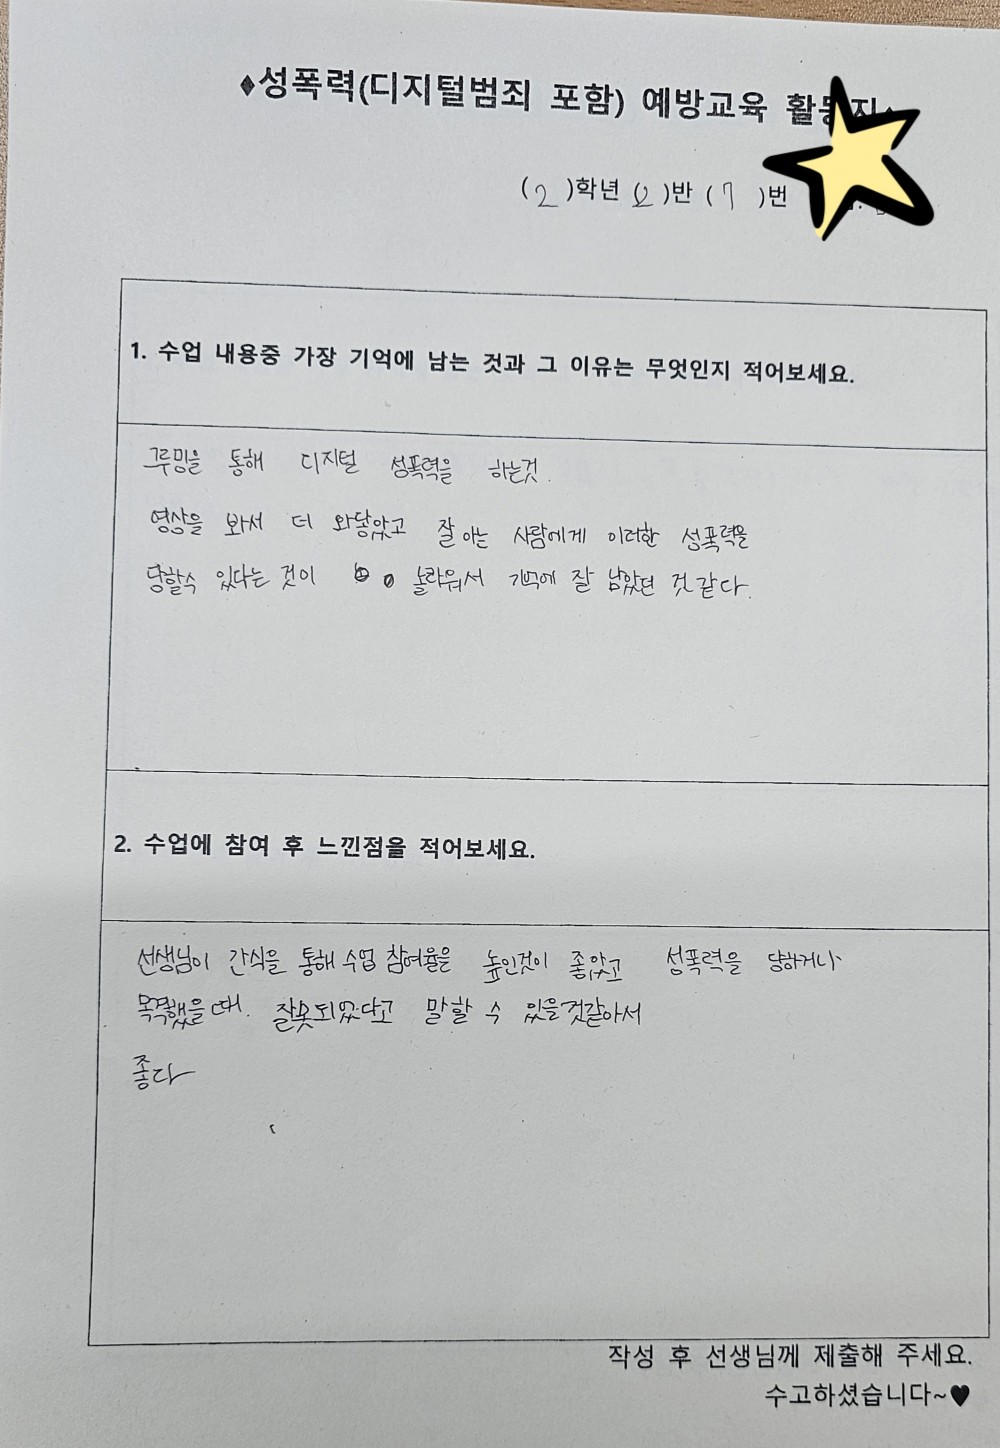 ♦성폭력(디지털범죄 포함) 예방교육
(2)학년 (2)반 (7)번
1. 수업 내용중 가장 기억에 남는 것과 그 이유는 무엇인지 적어보세요.
그루밍을 통해 디지털 성폭력을 하는것.
영상을 봐서 더 와닿았고 잘 아는 사람에게 이러한 성폭력을
당할수 있다는 것이 놀라워서 기억에 잘 남았던 것 같다.
2. 수업에 참여 후 느낀점을 적어보세요.
선생님이 간식을 통해 수업 참여율을 높인것이 좋았고 성폭력을 당하거나
목격했을 때. 잘못되었다고 말할 수 있을것같아서
좋다
작성 후 선생님께 제출해 주세요.
수고하셨습니다~♥